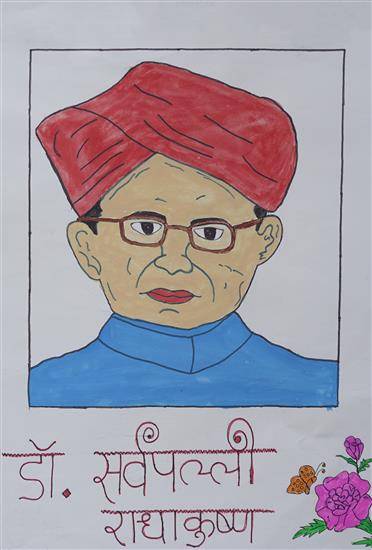 डॉ. सर्वपल्ली
राधाकृष्ण